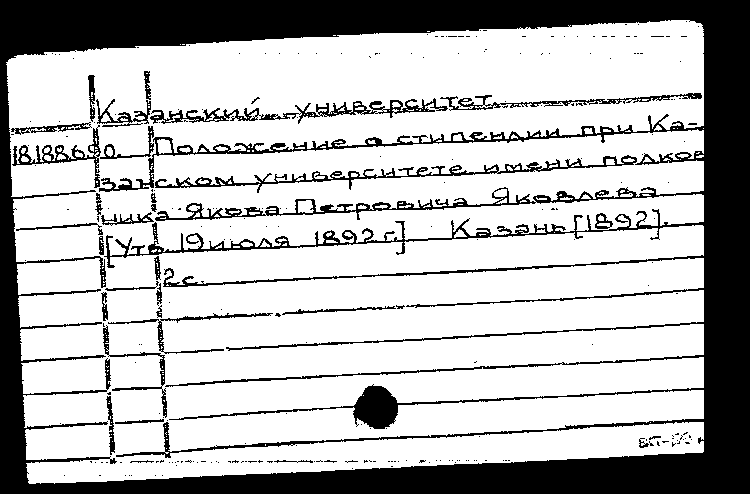 Казанский университет.
18.188.6.90. Положение о стипендии при Ка-
занском университете имени полков
ника Якова Петровича Яковлева
[Утв. 19 июля 1892 г.] Казань [1892].
2 с.